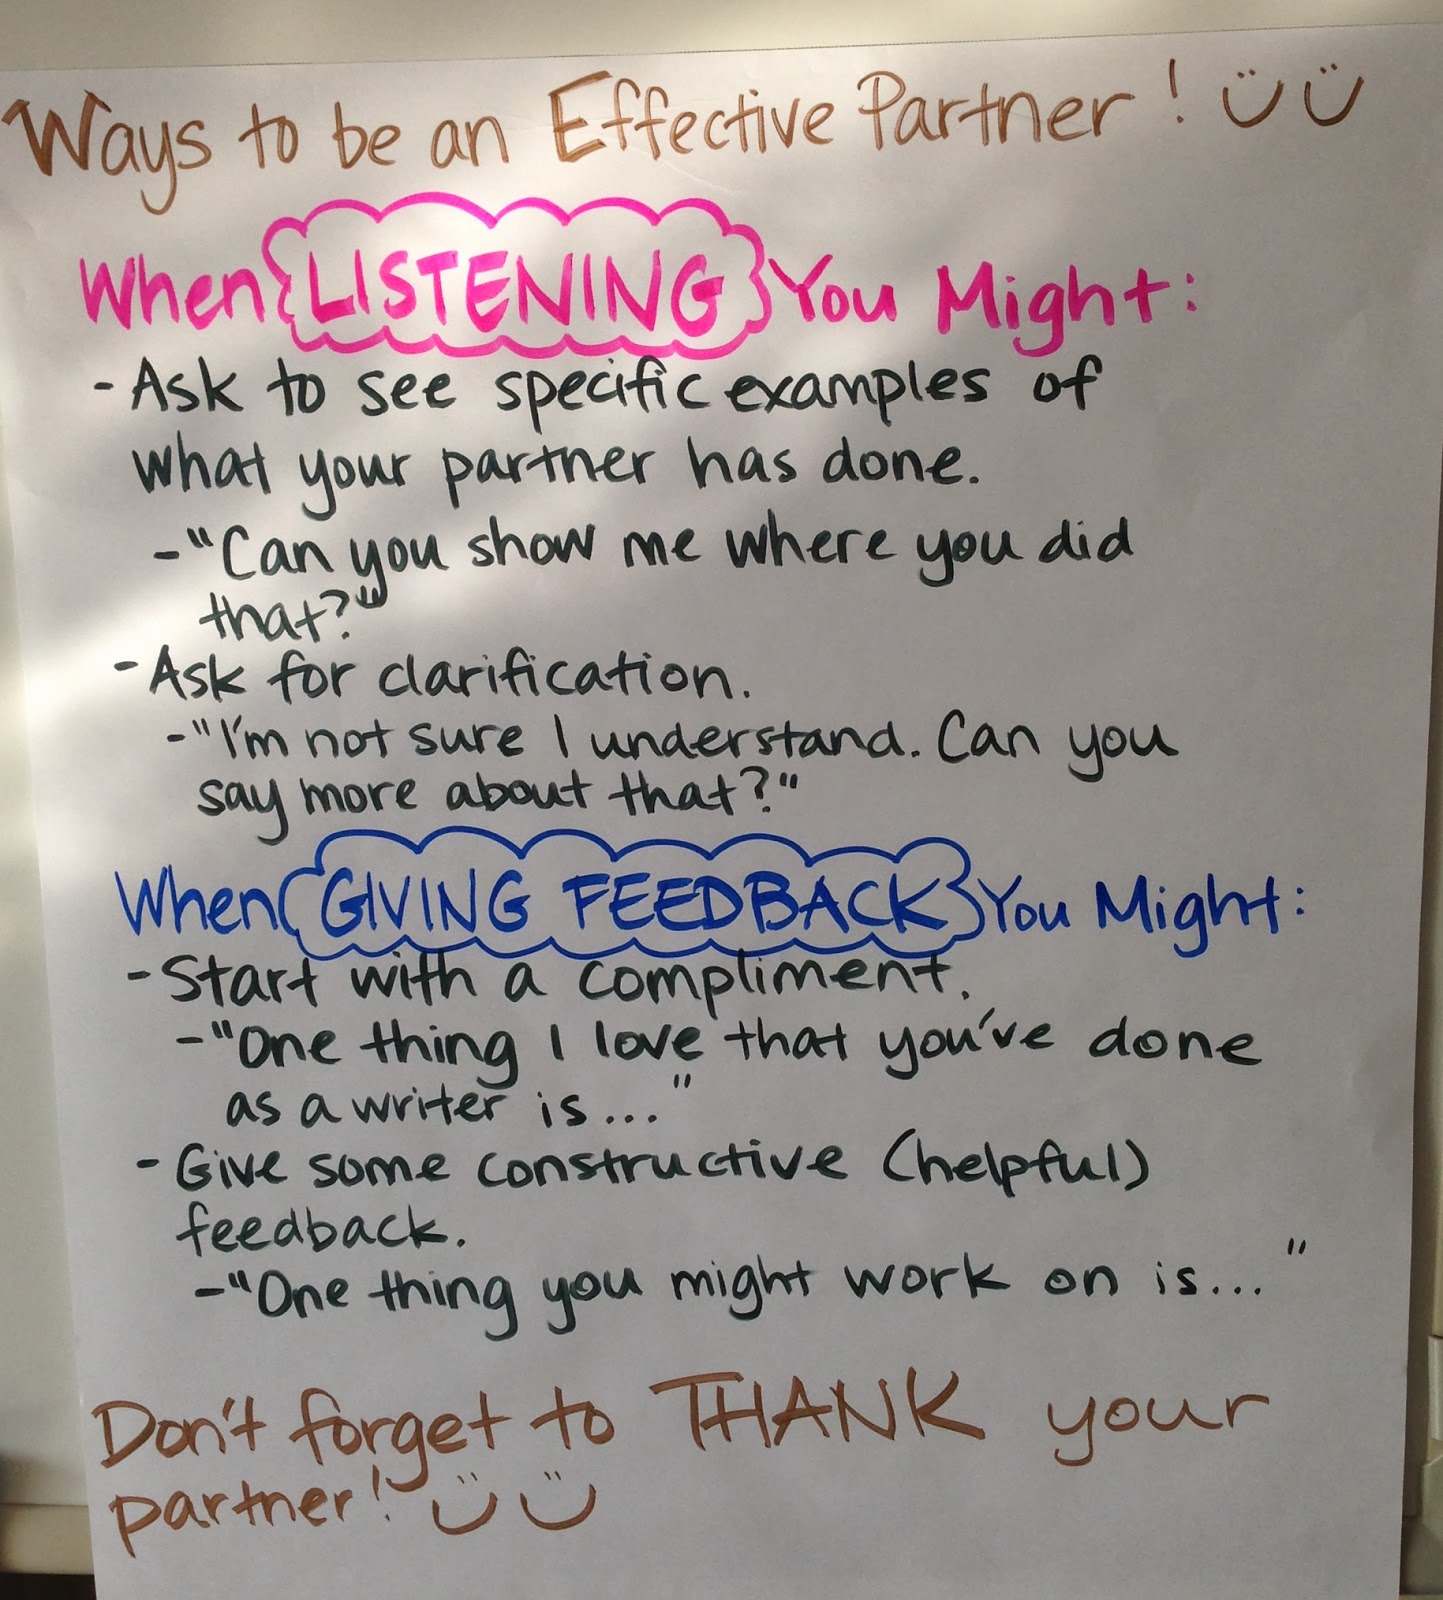 Ways to be an Effective Partner!
When LISTENING You Might:
- Ask to see specific examples of
what your partner has done.
- "Can you show me where you did
that?"
- Ask for clarification.
- "I'm not sure I understand. Can you
say more about that?"
When GIVING FEEDBACK You Might:
- Start with a compliment.
- "One thing I love that you've done
as a writer is..."
- Give some constructive (helpful)
feedback.
- "One thing you might work on is..."
Don't forget to THANK your
partner!